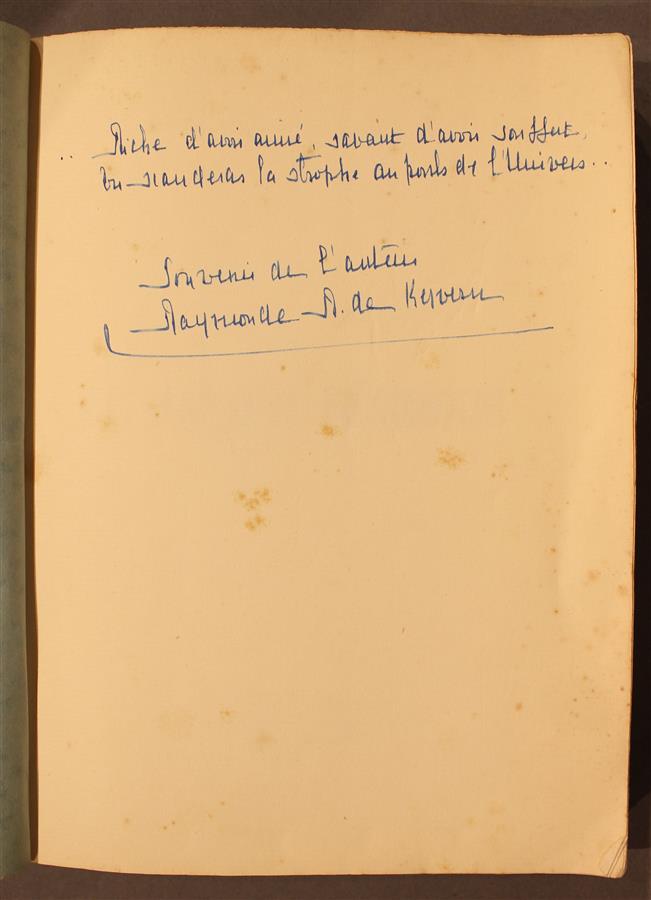 .. Riche d'avoir aimé, savant d'avoir souffert,
tu scanderas la strophe au pouls de l'Univers..
Souvenir de l'auteur
Raymonde A. de Kervern